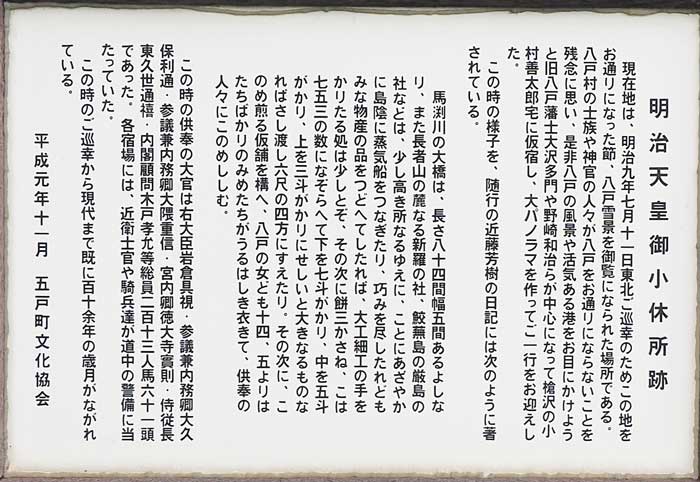 明治天皇御小休所跡
現在地は、明治九年七月十一日東北ご巡幸のためこの地を
お通りになった節、八戸雪景を御覧になられた場所である。
八戸村の士族や神官の人々が八戸をお通りにならないことを
残念に思い、是非八戸の風景や活気ある港をお目にかけよう
と旧八戸藩士大沢多門や野崎和治らが中心になって槍沢の小
村善太郎宅に仮宿し、大パノラマを作ってご一行をお迎えし
た。
この時の様子を、随行の近藤芳樹の日記には次のように著
されている。
馬渕川の大橋は、長さ八十四間幅五間あるよしな
リ、また長者山の麓なる新羅の社、鮫蕪島の厳島の
社などは、少し高き所なるゆえに、ことにあざやか
に島陰に蒸気船をつなぎたり、巧みを尽したれども
みな物産の品をつどへてしたれば、大工細工の手を
かりたる処は少しとぞ、その次に餅三かさね、こは
七五三の数になぞらへて下を七斗がかり、中を五斗
がかり、上を三斗がかりにせしいと大きなるものな
ればさし渡し六尺の四方にすえたり。その次に、こ
のめ煎る仮舗を構へ、八戸の女ども十四、五よりは
たちばかりのみめたちがうるはしき衣きて、供奉の
人々にこのめしひむ。
この時の供奉の大官は右大臣岩倉具視・参議兼内務卿大久
保利通・参議兼内務卿大隈重信・宮内卿徳大寺實則・侍従長
東久世通禧・内閣顧問木戸孝允等総員二百十三人馬六十一頭
であった。各宿場には、近衛士官や騎兵達が道中の警備に当
たっていた。
この時のご巡幸から現代まで既に百十余年の歳月がながれ
ている。
平成元年十一月 五戸町文化協会